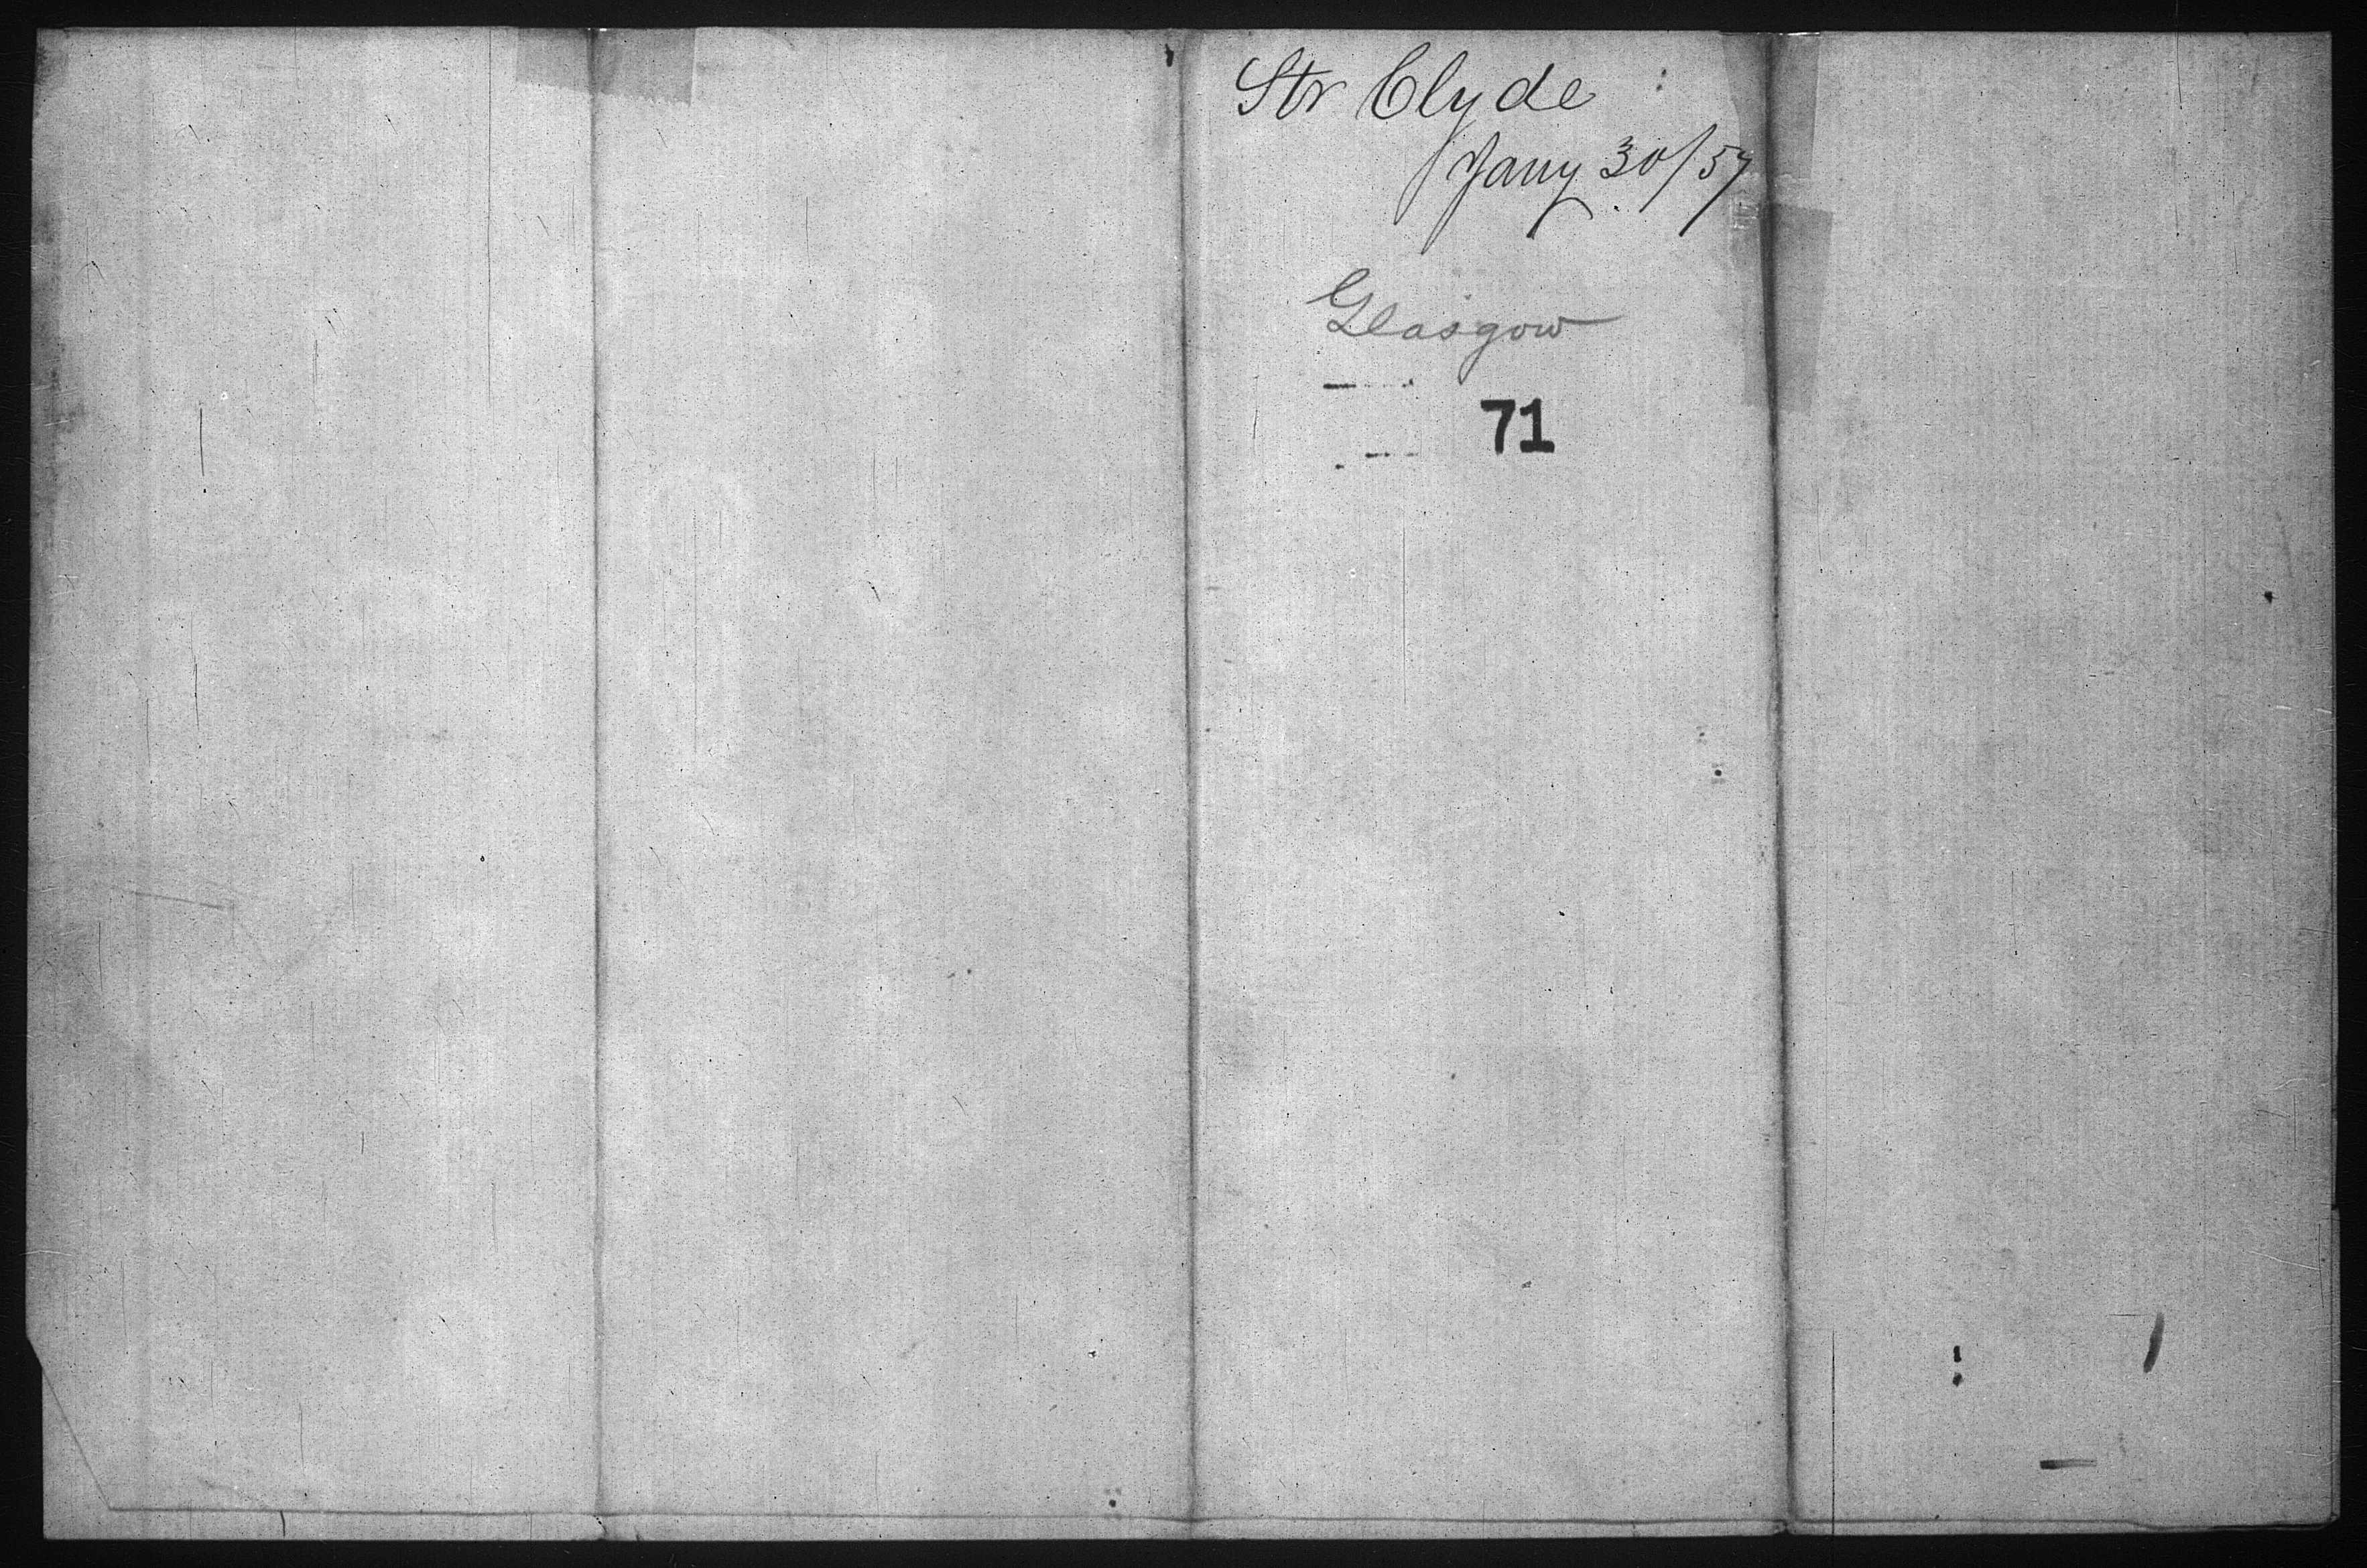 Str Clyde
Jany 30/57
Glasgow
71